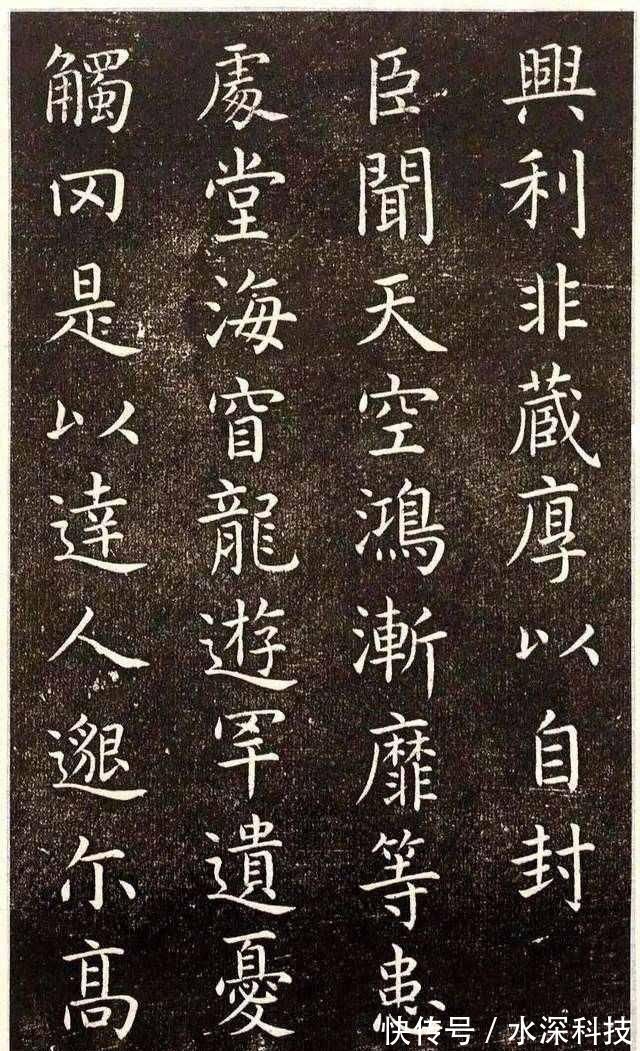 興利非蔵厚以自封
臣聞天空鴻漸靡等患
處堂海窅龍遊罕遺憂
觸罔是以達人邈尒髙
快传号 / 水深科技